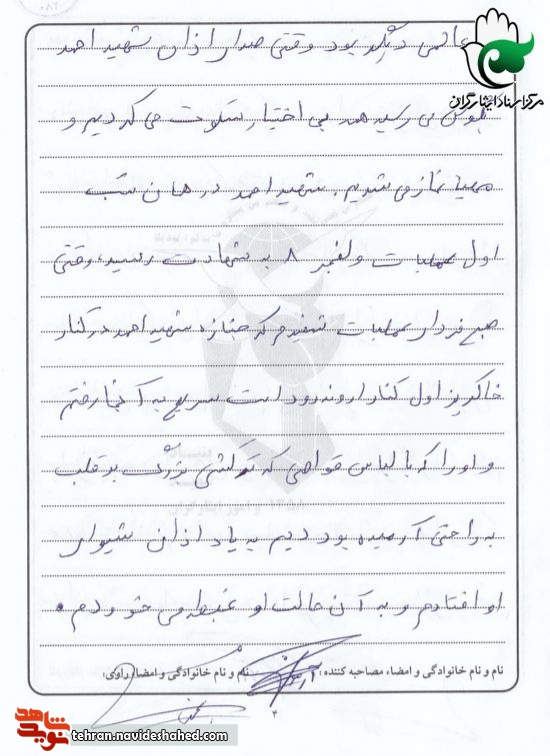 عالمی دیگر بود وقتی صدای اذان شهید احمد
بگوش می رسید همه بی اختیار سکوت می کردیم و
مهیای نماز می شدیم. شهید احمد در همان شب
اول عملیات والفجر ۸ به شهادت رسید، وقتی
صبح فردای عملیات شنیدم که جنازه شهید احمد در کنار
خاکریز اول کنار اروند رود است سریع به آنجا رفتم
و او را که با لباس غواصی که ترکشی بزرگ بر قلب
به راحتی آرمیده بود دیدم به یاد اذان شیوای
او افتادم و به آن حالت او غبطه می خوردم.
نام و نام خانوادگی و امضاء مصاحبه کننده:
نام و نام خانوادگی و امضاء راوی:
۴
مرکز اسناد ایثارگران
نوید شاهد
tehran.navideshahed.com